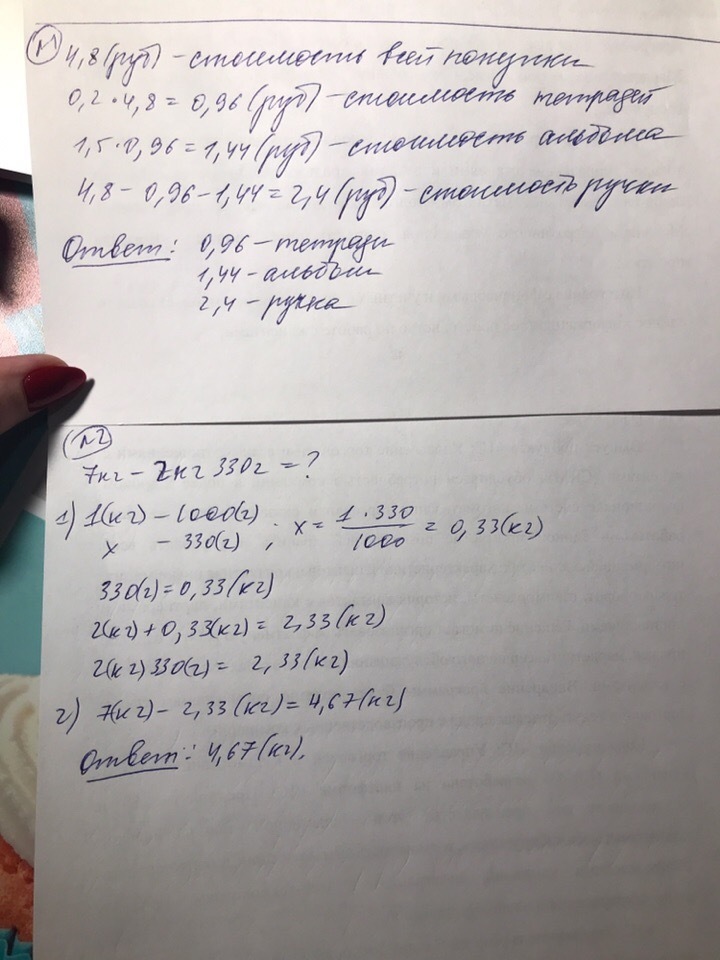 №1
4,8 (руб) - стоимость всей покупки
0,2 · 4,8 = 0,96 (руб) - стоимость тетрадей
1,5 · 0,96 = 1,44 (руб) - стоимость альбома
4,8 - 0,96 - 1,44 = 2,4 (руб) - стоимость ручки
Ответ: 0,96 - тетради
1,44 - альбом
2,4 - ручка
№2
7кг - 2кг 330г = ?
1) 1(кг) - 1000(г)
x - 330(г) ; x = 1 · 330 / 1000 = 0,33(кг)
330(г) = 0,33(кг)
2(кг) + 0,33(кг) = 2,33(кг)
2(кг) 330(г) = 2,33(кг)
2) 7(кг) - 2,33(кг) = 4,67(кг)
Ответ: 4,67(кг).